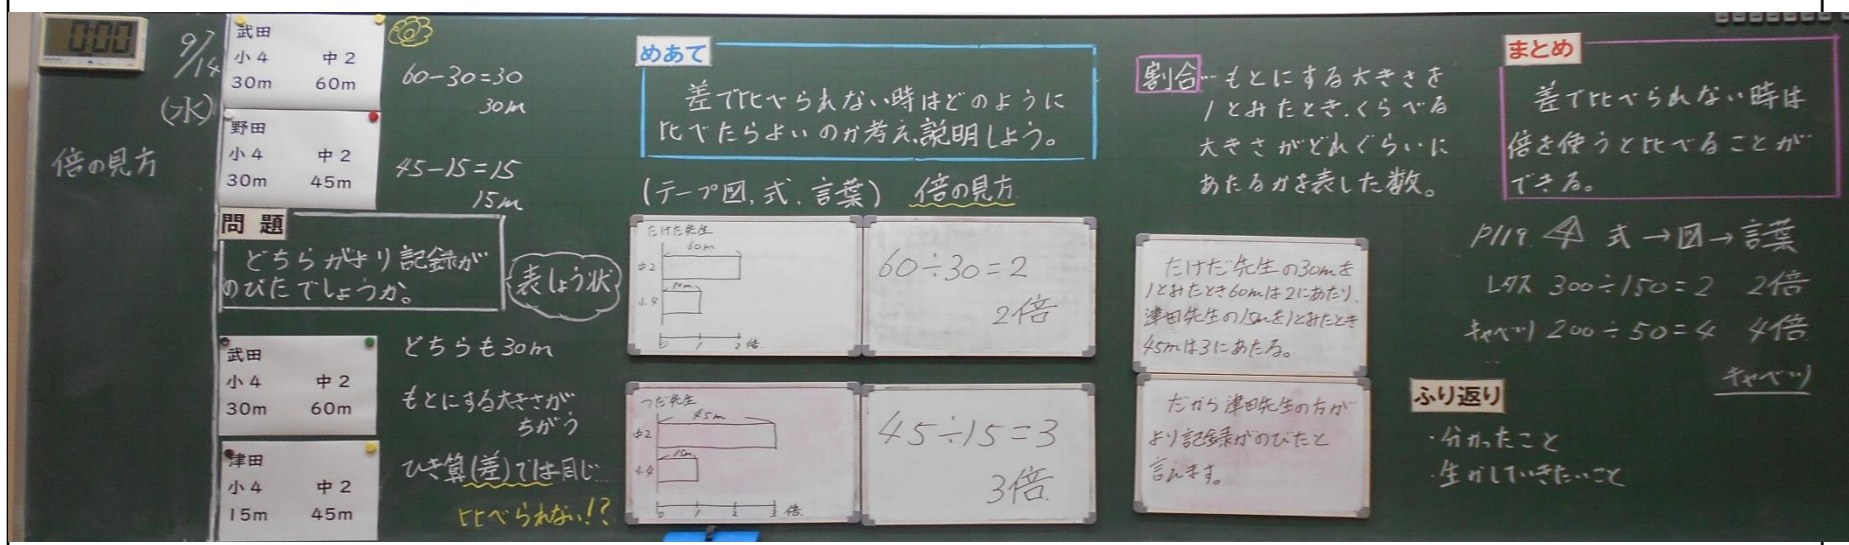 0:00
9/14
(水)
倍の見方
武田
小4 中2
30m 60m
野田
小4 中2
30m 45m
60-30=30
30m
45-15=15
15m
問題
どちらがより記録が
のびたでしょうか。
表しょう状
武田
小4 中2
30m 60m
津田
小4 中2
15m 45m
どちらも30m
もとにする大きさが
ちがう
ひき算(差)では同じ…
比べられない!?
めあて
差で比べられない時はどのように
比べたらよいのか考え、説明しよう。
(テープ図、式、言葉) 倍の見方
たけだ先生
60m
中2
30m
小4
0 1 2 倍
60÷30=2
2倍
つだ先生
45m
中2
15m
小4
0 1 2 3 倍
45÷15=3
3倍
割合…もとにする大きさを
1とみたとき、くらべる
大きさがどれぐらいに
あたるかを表した数。
たけだ先生の30mを
1とみたとき60mは2にあたり、
津田先生の15mを1とみたとき
45mは3にあたる。
だから津田先生の方が
より記録がのびたと
言えます。
まとめ
差で比べられない時は
倍を使うと比べることが
できる。
P119 4 式→図→言葉
レタス 300÷150=2 2倍
キャベツ 200÷50=4 4倍
キャベツ
ふり返り
・分かったこと
・生かしていきたいこと